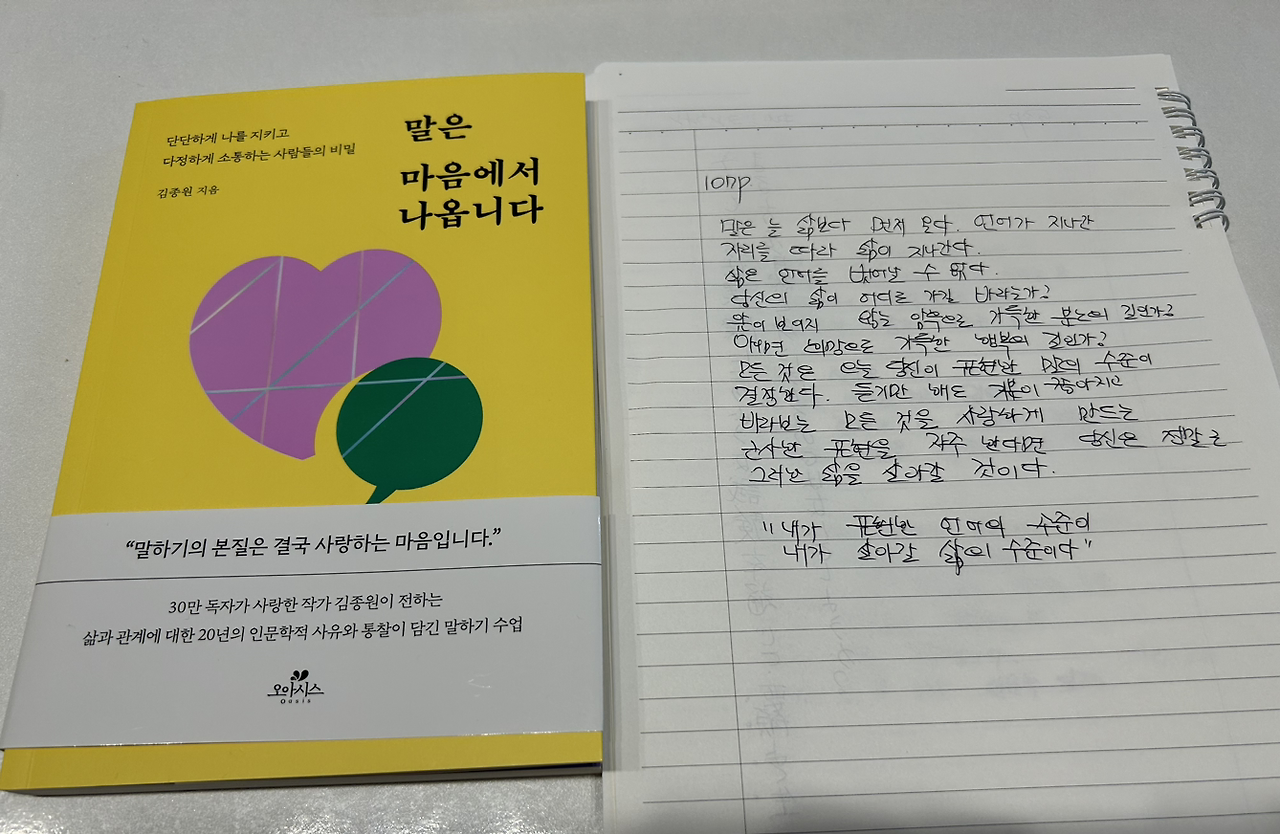 단단하게 나를 지키고
다정하게 소통하는 사람들의 비밀
김종원 지음
말은
마음에서
나옵니다
“말하기의 본질은 결국 사랑하는 마음입니다.”
30만 독자가 사랑한 작가 김종원이 전하는
삶과 관계에 대한 20년의 인문학적 사유와 통찰이 담긴 말하기 수업
오아시스
oasis
107p
말은 늘 삶보다 먼저 온다. 언어가 지나간
자리를 따라 삶이 지나간다.
삶은 언어를 벗어날 수 없다.
당신의 삶이 어디로 가길 바라는가?
앞이 보이지 않는 암흑으로 가득한 분노의 길인가?
아니면 희망으로 가득한 행복의 길인가?
모든 것은 오늘 당신이 표현한 말의 수준이
결정한다. 듣기만 해도 기분이 좋아지고
바라보는 모든 것을 사랑하게 만드는
근사한 표현을 자주 한다면 당신은 정말로
그러한 삶을 살아갈 것이다.
"내가 표현한 언어의 수준이
내가 살아갈 삶의 수준이다"